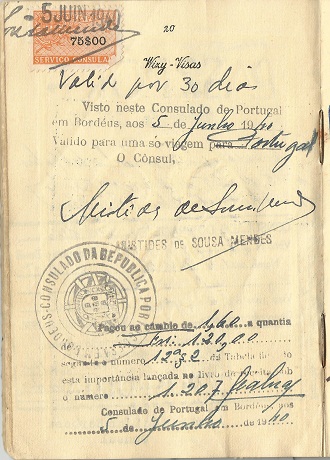 5 JUIN 1940
75$00
SERVIÇO CONSULAR
20
Wizy-Visas
Valid por 30 dias
Visto neste Consulado de Portugal
em Bordéus, aos 5 de Junho 1940
Valido para uma so viagem para Portugal
O Cônsul,
Aristides de Sousa Mendes
ARISTIDES DE SOUSA MENDES
CONSULADO DA REPUBLICA PORTUGUESA EM BORDEUS
Pagou ao câmbio de 1,60 a quantia
120,00
segundo o número da Tabela
esta importância lançada no livro da receita sob
o numero 1.207
Consulado de Portugal em Bordéus, aos
5 de Junho de 1940